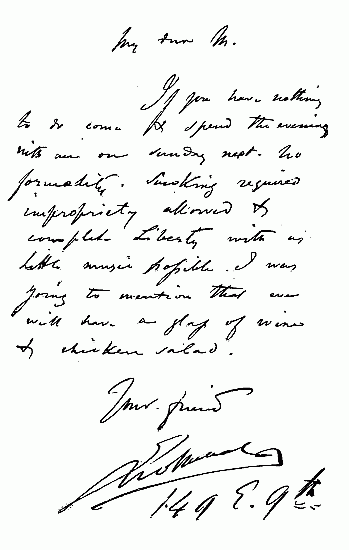 My dear M.
If you have nothing
to do come & spend the evening
with me on sunday next. No
formality. Smoking required
impropriety allowed &
complete Liberty with as
little music possible. I was
going to mention that we
will have a glass of wine
& chicken salad.
Your friend
149 E. 9th